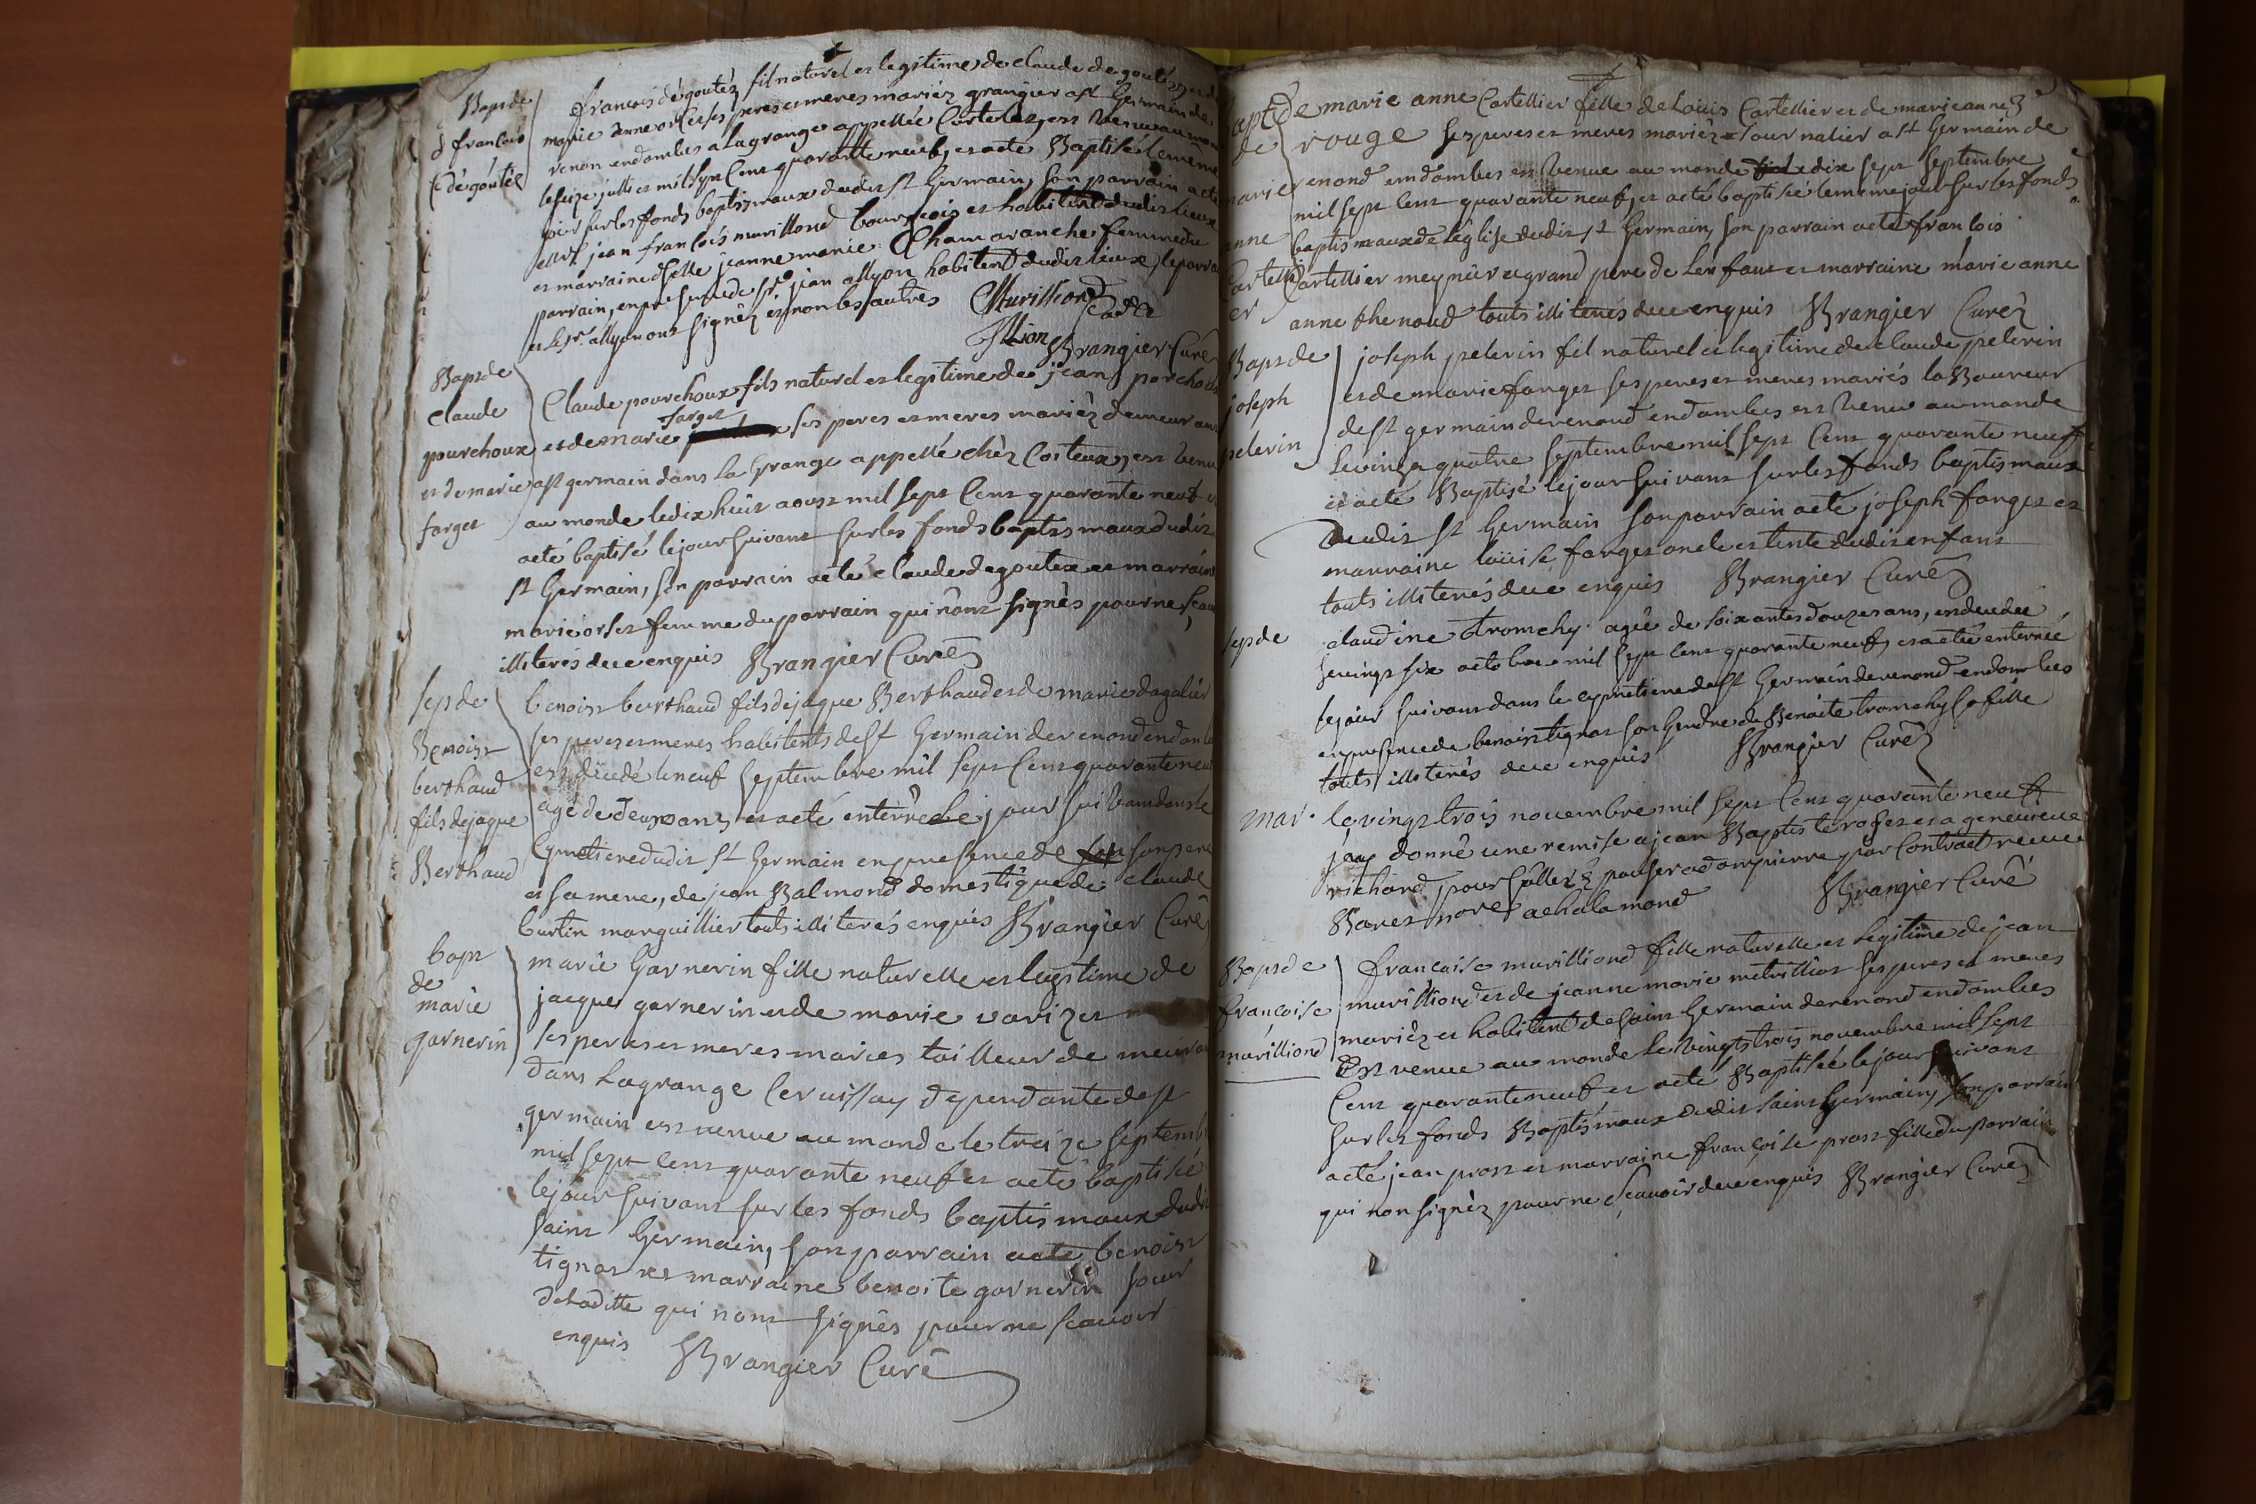 Bapt de
d françois
de goutéz
francois dégoutéz fil naturel et legitime de claude de goutéz et de
marie anne orset ses peres et meres mariéz grangier a st Germain de
renon endombes a la grange appellée Corteley, est venu au monde
le seize juillet mil sept Cent quarante neuf, et acté Baptisé le même
jour sur les fonds baptismaux dudit st Germain, son parrain acté
jean francois murilliond bourgeois et habitent dudit lieux
et marraine dselle jeanne marie Chamaranche femme du
parrain, en presence de sr jean allyon habitent dudit lieux, le parrain
et le sr. allyon ont signéz et non les autres Murilliond
Allion Brangier Curé
Bapt de
claude
pourchoux
et de marie
farget
Claude pourchoux fils naturel et legitime de jean porchoux
farget
et de marie ses peres et meres mariéz demeurans
a st germain dans la Grange appellé chèz Coiteux, est venu
au monde le dix huit aoust mil sept Cent quarante neuf et
acté baptisé le jour suivant sur les fonds baptismaux dudit
st Germain, son parrain acté claude degoutex et marraine
marie orset femme du parrain qui nont signès pour ne scavoir
illiterés de ce enquis Brangier Curé
sep de
Benoist
berthaud
fils de jaque
Berthaud
benoist berthaud fils de jaque Berthaud et de marie dagalier
ses peres et meres habitents de st Germain de renond endombes
est décédé le neuf septembre mil sept Cent quarante neuf
agé de deux ans, et acté enterré le jour suivam dans le
cymetiere dudit st Germain en presence de son pere
et sa mere, de jean Balmond domestique de claude
burtin marguillier touts illiterés enquis Brangier Curé
bapt
de
marie
garnerin
marie Garnerin fille naturelle et legitime de
jacque garnerin et de marie varizet
ses peres et meres mariés tailleur de
dans la grange Cervissay dependante de st
germain est venue au monde le treize septembre
mil sept cent quarante neuf et acté baptisée
le jour suivant sur les fonds baptismaux dudit
saint Germain, son parrain acté benoist
tignat et marraine benoite garnerin sour
de laditte qui nont signés pour ne scavoir
enquis Brangier Curé
bapt
de
marie
anne
Cartelli
er
de marie anne Cartellier fille de Louis Cartellier et de marie anne
rouge ses peres et meres mariéz journalier a st Germain de
renond endombes est venue au monde le dix sept septembre
mil sept Cent quarante neuf, et acté baptisée le meme jour sur les fonds
baptismaux de l'église dudit st Germain, son parrain acté francois
Cartellier meynier et grand pere de l'enfant et marraine marie anne
anne thenoud touts illiterés de ce enquis Brangier Curé
Bapt de
joseph
pelerin
joseph pelerin fil naturel et legitime de claude pelerin
et de marie farget ses peres et meres mariés laBoureur
de st germain de renond endombes est venu au monde
le vingt quatre septembre mil sept Cent quarante neuf
et acté Baptisé le jour suivant sur les fonds baptismaux
dudit st Germain son parrain acté joseph farget et
marraine loüise farget oncle et tente dudit enfant
touts illiterés de ce enquis Brangier Curé
sep de
claudine tromchy agée de soixante et douze ans, est decedée
le vingt six octobre mil sept cent quarante neuf, et acté enterrée
le jour suivant dans le cymetiere de st Germain de renond endombes
en presence de benoist tignat son Gendre de Benoite tromchy sa fille
touts illiterés de ce enquis Brangier Curé
mar.
le vingt trois novembre mil sept Cent quarante neuf
j'ay donné une remise a jean Baptiste roset et a genevieve
richard pour s'aller epouser a dompierre par Contract receu
Baret nore a chalamond Brangier Curé
Bapt de
francoise
murilliond
francoise murilliond fille naturelle et legitime de jean
murilliond et de jeanne marie metrilliot ses peres et meres
mariéz et habitent de saint Germain de renond endombes
est venue au monde le vingt trois novembre mil sept
Cent quarante neuf et acté Baptisée le jour suivant
sur les fonds Baptismaux dudit saint Germain, son parrain
acté jean prost et marraine françoise prost fille du parrain
qui non signéz pour ne scavoir de ce enquis Brangier Curé